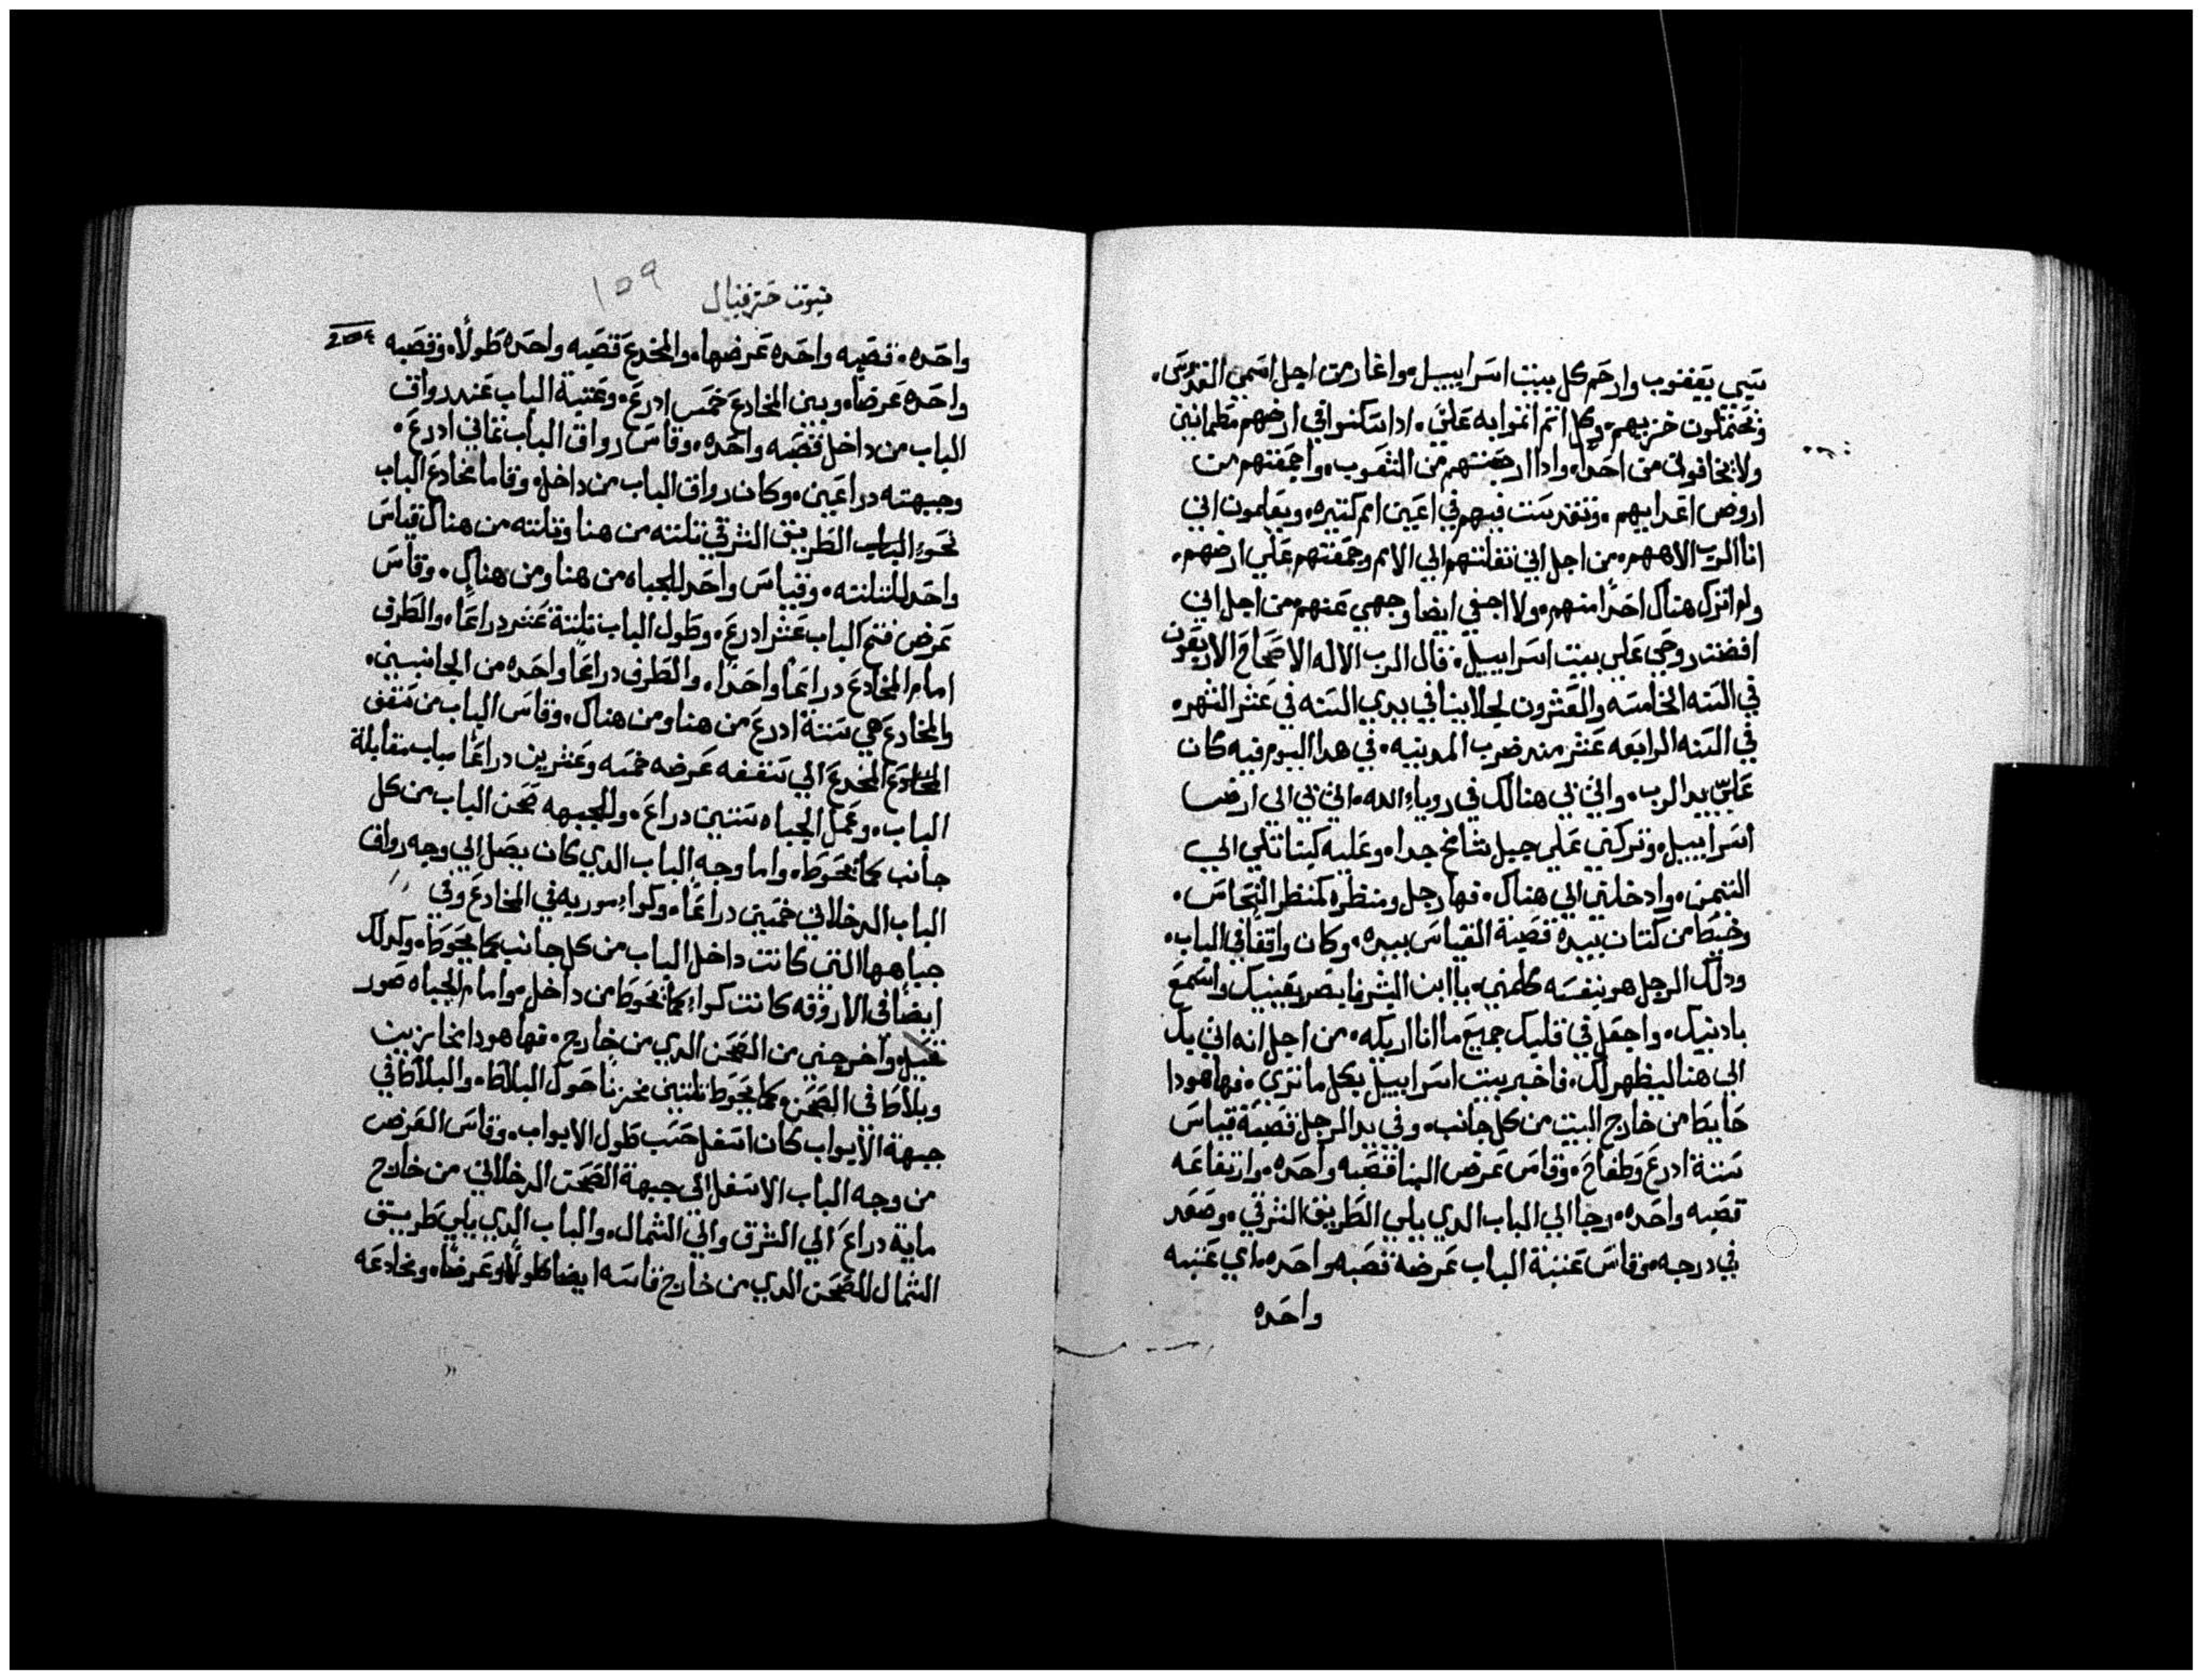 سبي يعقوب وارحم كل بيت اسراييل، واغار من اجل اسمي القدوس،
فيحتملون خزيهم، وكل اثم اثموا به علي، ادا سكنوا في ارضهم مطمانين
ولا يخافون من احدا، وادا ارجعتهم من الشعوب، واجمعتهم من
اروض اعدايهم، وتقدست فيهم في اعين امم كتيره، ويعلمون اني
انا الرب الاههم، من اجل اني نقلتهم الي الامم وجمعتهم علي ارضهم،
ولم اترك هناك احدا منهم، ولا اخفي ايضا وجهي عنهم، من اجل اني
افضت روحي علي بيت اسراييل، قال الرب الاله الاصحاح الاربعون
في السنه الخامسه والعشرون لجلاينا في بدي السنه في عشر الشهر،
في السنه الرابعه عشر مند ضرب المدينه، في هدا اليوم فيه كان
علي يد الرب، واتي بي هنالك في روياء الله، اتي بي الي ارض
اسراييل، وتركني علي جبل شامخ جدا، وعليه كبنا تلي الي
التيمن، وادخلني الي هناك، فها رجل ومنظره كمنظر النحاس،
وخيط من كتان بيده قصبة القياس بيده، وكان واقفا في الباب،
ودلك الرجل هو نفسه كلمني، يا ابن البشر فابصر بعينيك واسمع
بادنيك، واجعل في قلبك جميع ما انا اريكه، من اجل انه اتي بك
الي هنا ليظهر لك، فاخبر بيت اسراييل بكل ما تري، فها هودا
حايط من خارج البيت من كل جانب، وفي يد الرجل قصبة قياس
ستة ادرع وطفاح، وقاس عرض البنا قصبه واحده، وارتفاعه
قصبه واحده، وجا الي الباب الدي يلي الطريق الشرقي، وصعد
في درجه، وقاس عتبة الباب عرضه قصبه واحده، اي عتبه
واحده
نبوت حزقيال
١٥٩
واحده، قصبه واحده عرضها، والمخدع قصبه واحده طولا، وقصبه
واحده عرضا، وبين المخادع خمس ادرع، وعتبة الباب عند رواق
الباب من داخل قصبه واحده، وقاس رواق الباب تماني ادرع،
وجبهته دراعين، وكان رواق الباب من داخل، وقاما مخادع الباب
نحو الطريق الشرقي تلته من هنا وتلته من هناك قياس
واحد للتلته، وقياس واحد للجباه من هنا ومن هناك، وقاس
عرض فتح الباب عشر ادرع، وطول الباب تلتة عشر دراعا، والطرف
امام المخادع دراعا واحدا، والطرف دراعا واحده من الجانبين،
والمخادع هي ستة ادرع من هنا ومن هناك، وقاس الباب من سقف
المخدع الي سقفه عرضه خمسه وعشرين دراعا باب مقابلة
الباب، وعمل الجباه ستين دراع، وللجبهه صحن الباب من كل
جانب كما يحوط، واما وجه الباب الدي كان يصل الي وجه رواق
الباب الدخلاني خمسين دراعا، وكواء سوريه في المخادع وفي
جباهها التي كانت داخل الباب من كل جانب كما يحوط، وكدلك
ايضا في الاروقه كانت كواء كما يحوط من داخل، وامام الجباه صور
نخيل، واخرجني من الصحن الدي من خارج، فها هودا مخازين
وبلاط في الصحن، كما يحوط تلتين مخزنا حول البلاط، والبلاط في
جبهة الابواب كان اسفل حسب طول الابواب، وقاس العرض
من وجه الباب الاسفل الي جبهة الصحن الدخلاني من خارج
ماية دراع الي الشرق والي الشمال، والباب الدي يلي طريق
الشمال للصحن الدي من خارج قاسه ايضا طولا وعرضا، ومخادعه